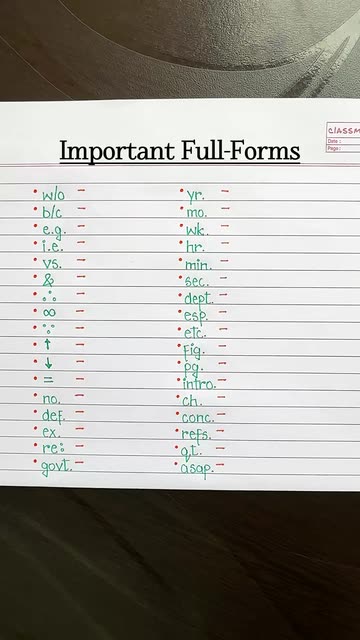 CLASSM
Date :
Page :
Important Full-Forms
• w/o –
• b/c –
• e.g. –
• i.e. –
• vs. –
• & –
• ∴ –
• ∞ –
• ∵ –
• ↑ –
• ↓ –
• = –
• no. –
• def. –
• ex. –
• re: –
• govt. –
• yr. –
• mo. –
• wk. –
• hr. –
• min. –
• sec. –
• dept. –
• esp. –
• etc. –
• Fig. –
• pg. –
• intro. –
• ch. –
• conc. –
• refs. –
• qt. –
• asap. –